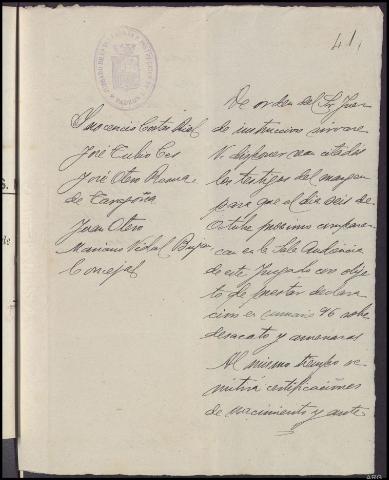 41
Juscencio Costas Rial
José Tubio Ces
José Otero Rosua
de Taragoña
Juan Otero
Mariano Vidal Buján
Concejal
De orden del Sr. Juez
de instrucción sírvase
V. disponer sean citados
los testigos del margen
para que el día seis de
Octubre próximo comparez
can en la Sala Audiencia
de este Juzgado con obje
to de prestar declara
ción en sumario 96 sobre
desacato y amenazas
Al mismo tiempo re
mitirá certificaciones
de nacimiento y ante